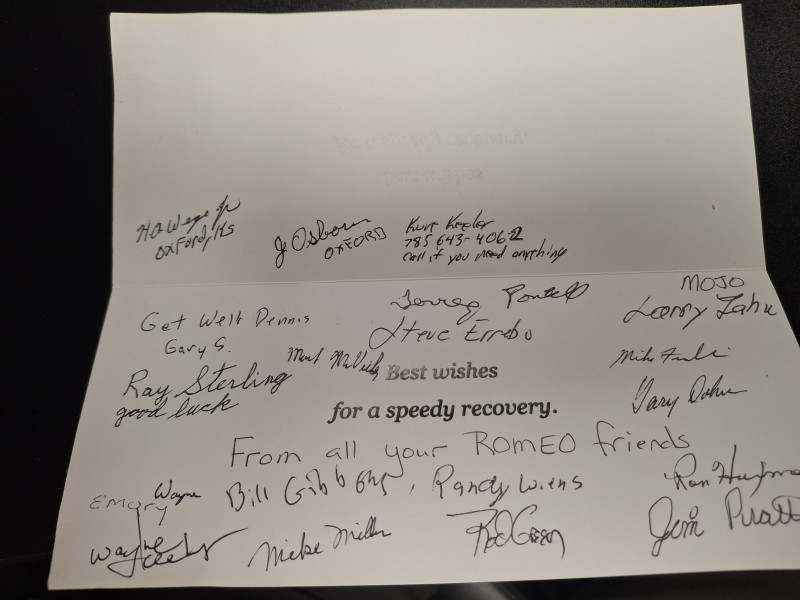 Oxford, Ks
J Osborn
OXFORD
Kurt Keeler
785 643-4062
call if you need anything
Get Well Dennis
Gary G.
Steve Errebo
MOJO
Larry
Ray Sterling
good luck
Mark
Mike
Gary
Best wishes
for a speedy recovery.
From all your ROMEO friends
Emory Wayne
Bill Gibbons, Randy Wiens
Ron
Wayne
Mike Miller
Rod Green
Jim Pruatt